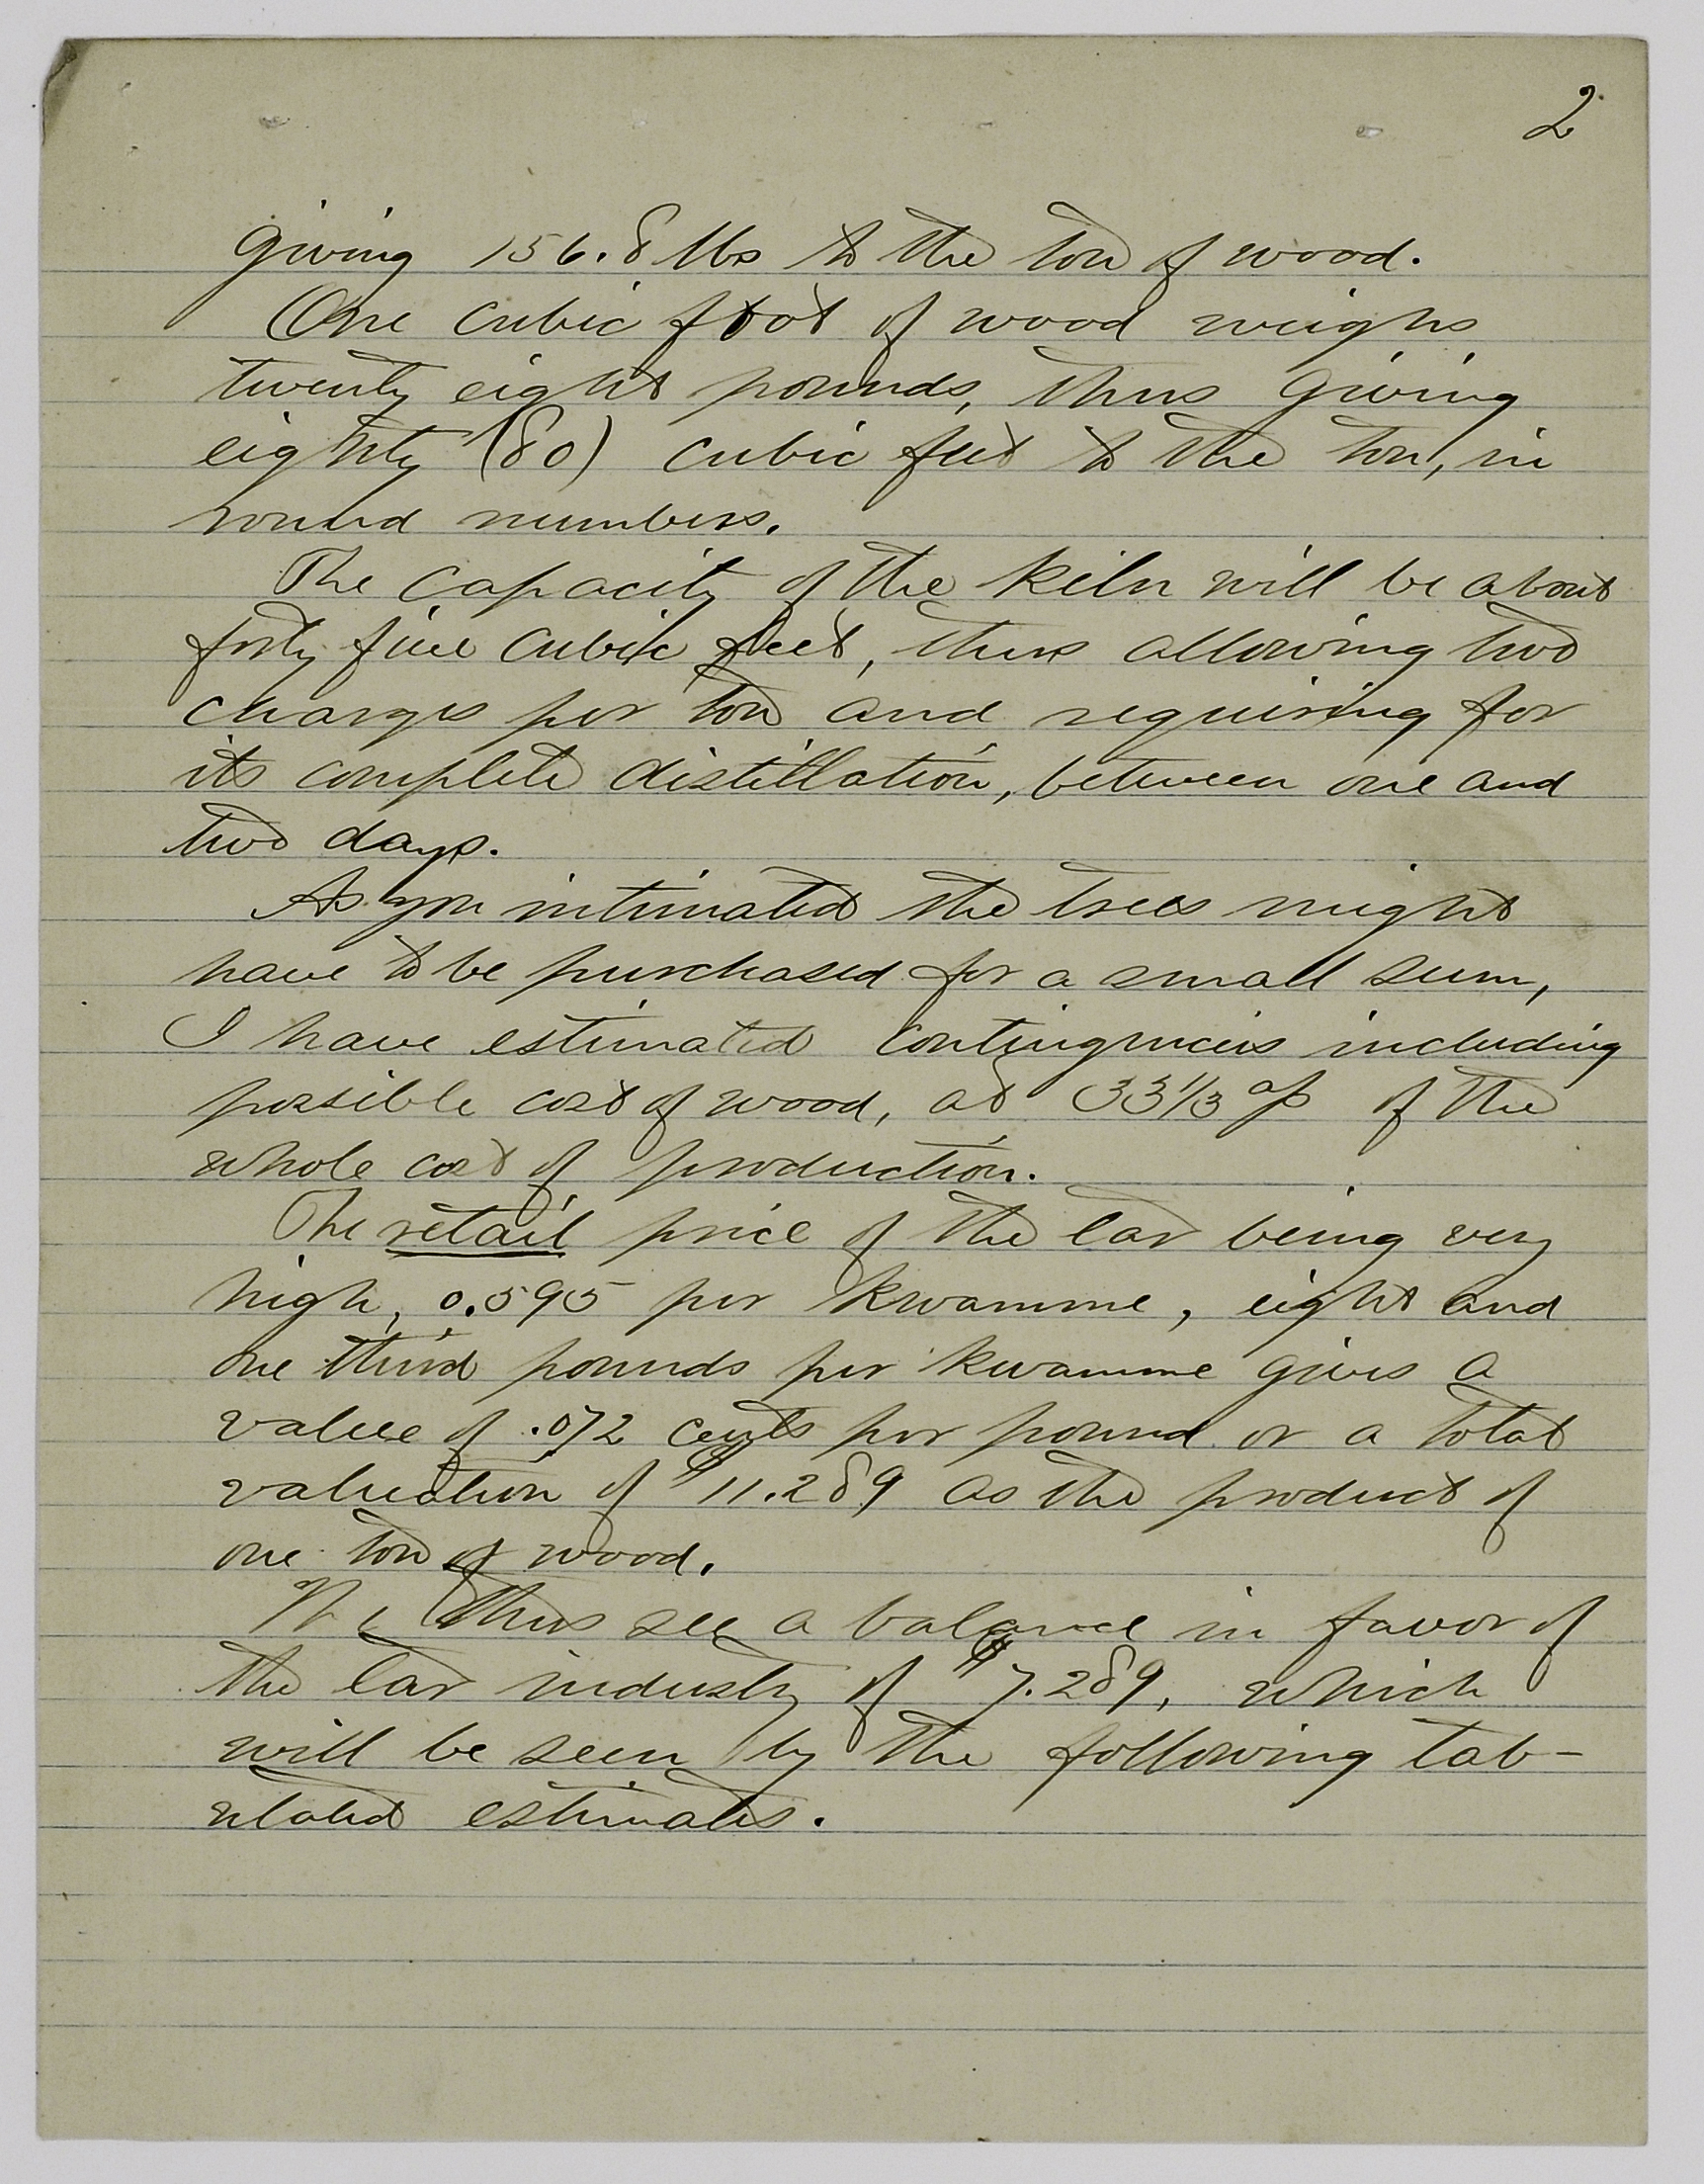 2
giving 156.8 lbs to the ton of wood.
One cubic foot of wood weighs
twenty eight pounds, thus giving
eighty (80) cubic feet to the ton, in
round numbers.
The capacity of the kiln will be about
forty five cubic feet, thus allowing two
charges per ton and requiring for
its complete distillation, between one and
two days.
As you intimated the trees might
have to be purchased for a small sum,
I have estimated contingencies including
possible cost of wood, at 33 1/3 % of the
whole cost of production.
The retail price of the tar being very
high, 0.595 per kwamme, eight and
one third pounds per kwamme gives a
value of .072 cents per pound or a total
valuation of $11.289 as the product of
one ton of wood.
We thus see a balance in favor of
the tar industry of $7.289, which
will be seen by the following tab-
ulated estimates.